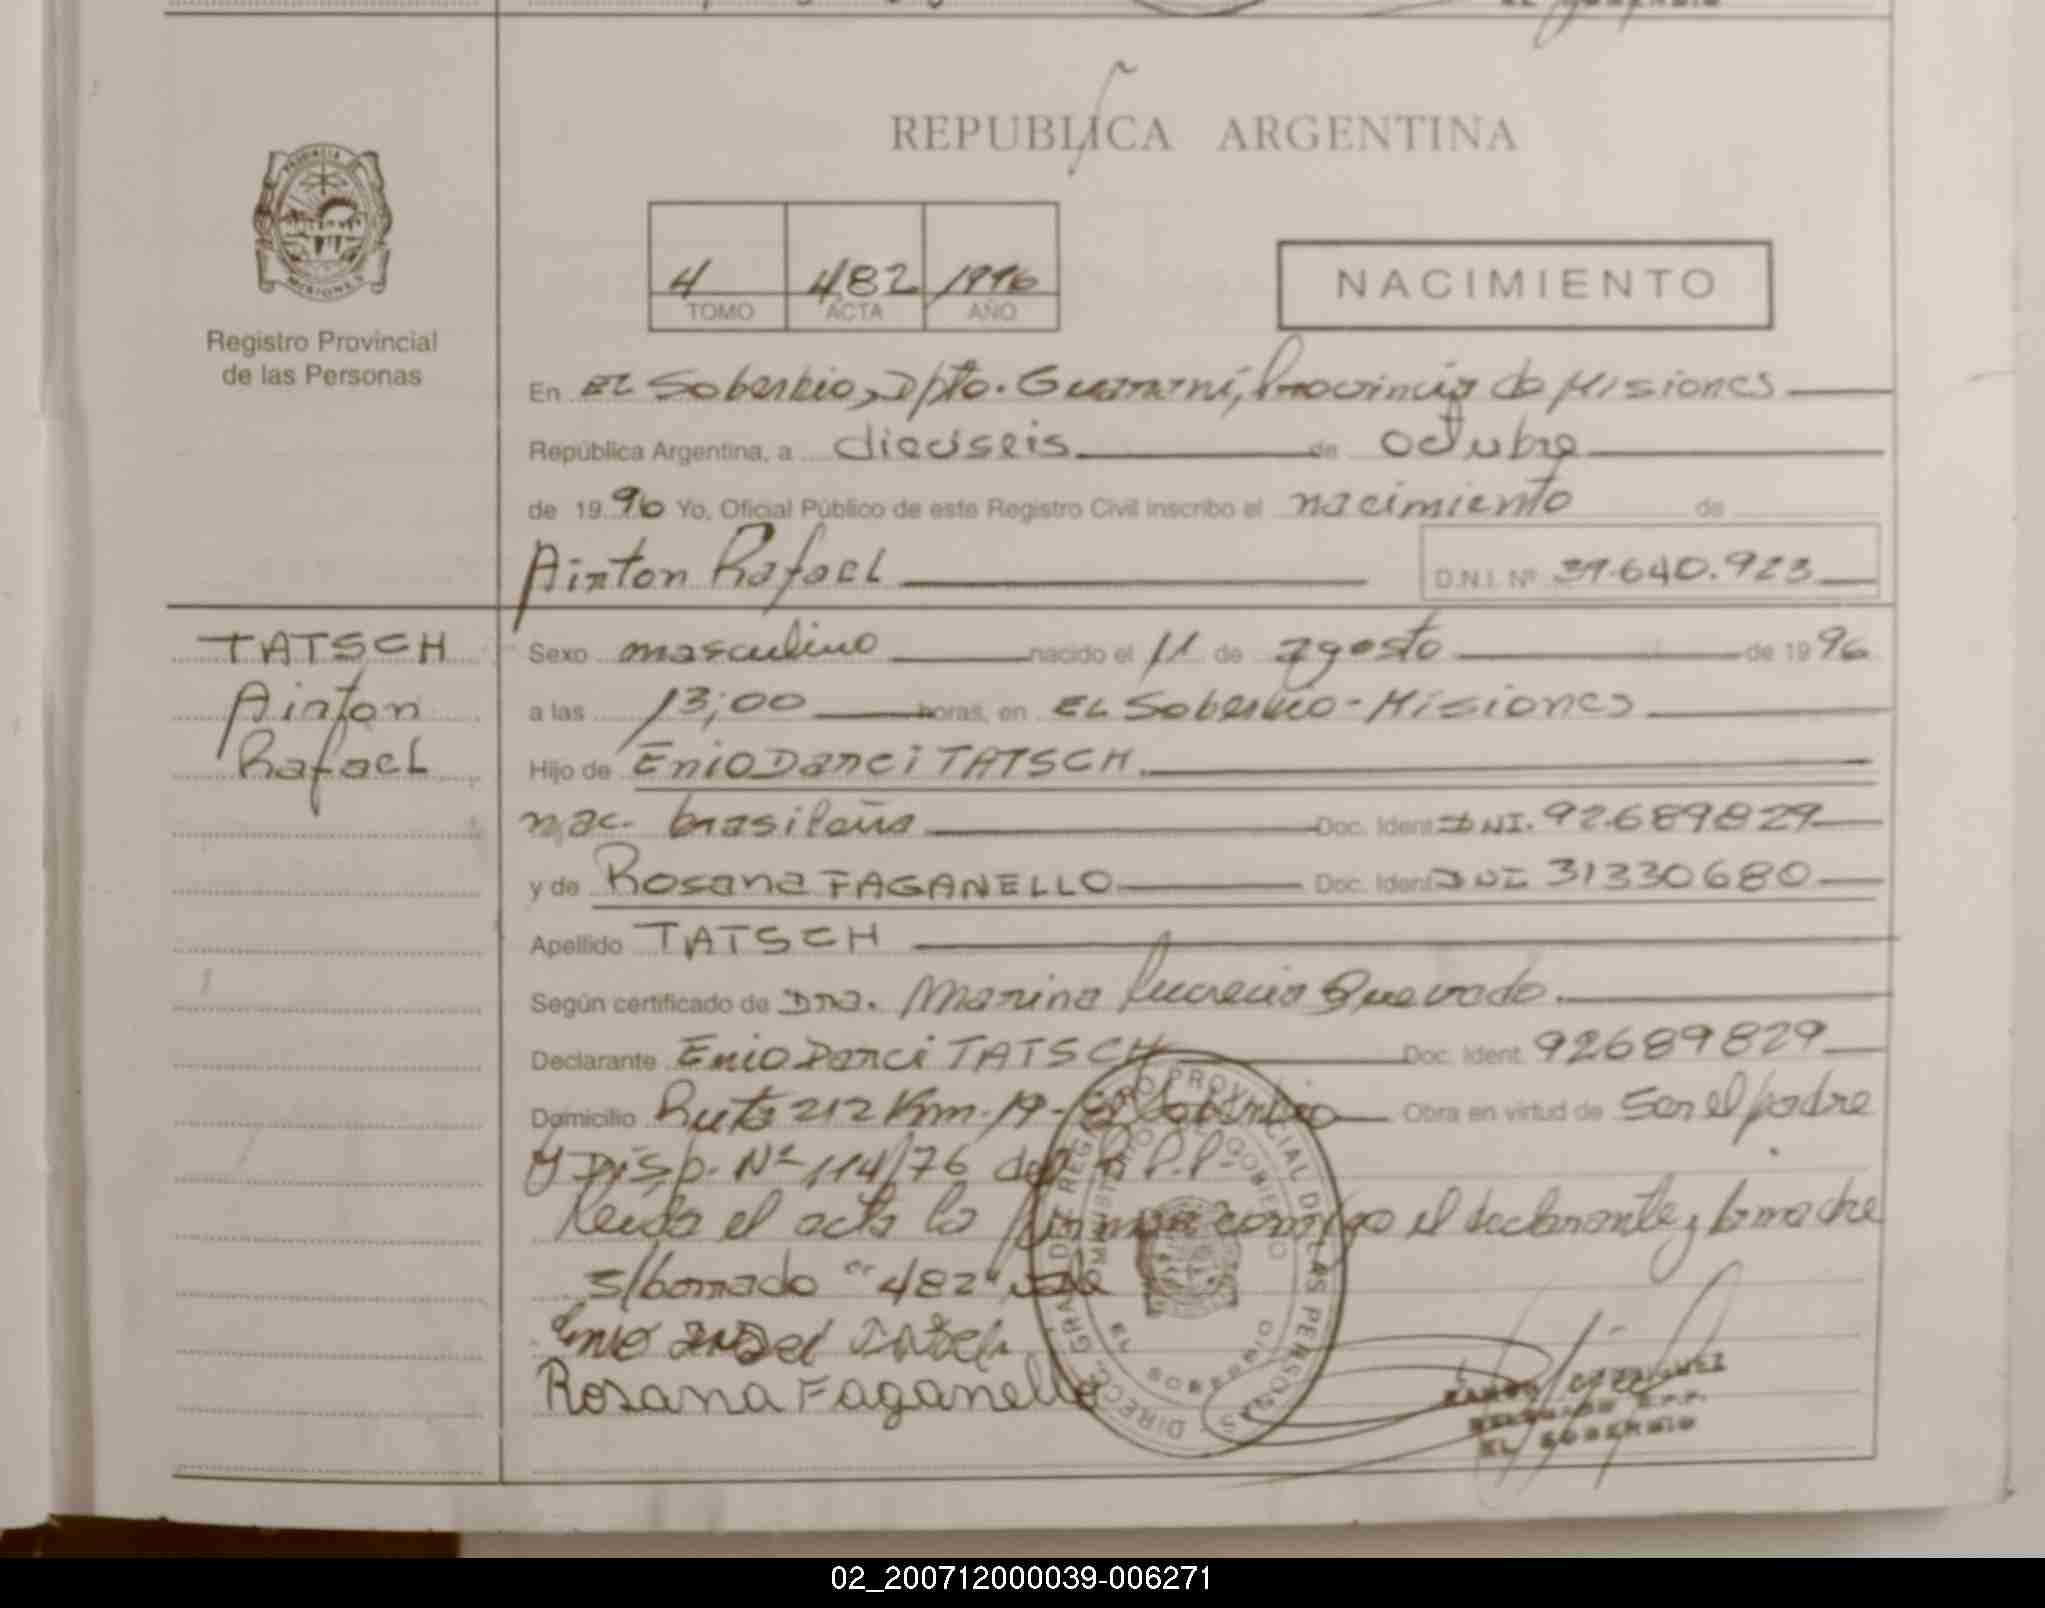 REPUBLICA ARGENTINA
PROVINCIA DE
MISIONES
Registro Provincial
de las Personas
4 482 1996
TOMO ACTA AÑO
NACIMIENTO
En EL Soberbio, Dpto. Guaraní, Provincia de Misiones
República Argentina, a dieciseis de octubre
de 1996 Yo, Oficial Público de este Registro Civil inscribo el nacimiento de
Airton Rafael D.N.I. Nº 39.640.923
TATSCH
Airton
Rafael
Sexo masculino nacido el 11 de agosto de 1996
a las 13;00 horas, en EL Soberbio - Misiones
Hijo de Enio Darci TATSCH
nac. brasileña Doc. Ident. DNI. 92.689829
y de Rosana FAGANELLO Doc. Ident. DNI 31330680
Apellido TATSCH
Según certificado de Dra. Marina Lucrecia Quevado.
Declarante Enio Darci TATSCH Doc. Ident. 92689829
Domicilio Ruta 212 Km. 19 - El Soberbio Obra en virtud de Ser el padre
y Disp. Nº 114/76 del R.P.P.
Leida el acta la firman conmigo el declarante y la madre
s/borrado "482" vale
Enio Tatsch
Rosana Faganello
DIRECC. GRAL. DE REGISTRO PROVINCIAL DE LAS PERSONAS
GOBIERNO
EL SOBERBIO
RAMON
R.P.P.
EL SOBERBIO
02_200712000039-006271